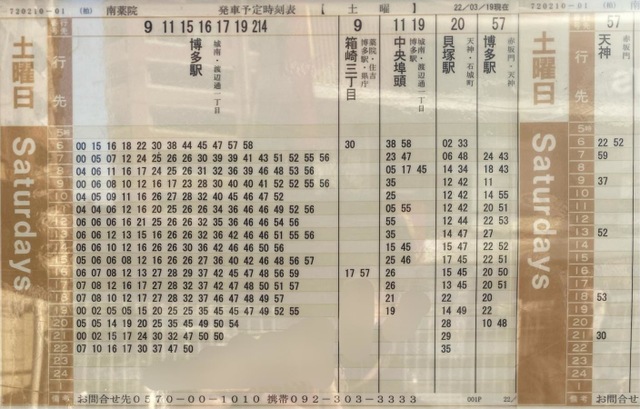 720210-01 (柏) 南薬院 発車予定時刻表 【 土 曜 】 22/03/19現在
土曜日 Saturdays
行先
9 11 15 16 17 19 214
城南・渡辺通一丁目
博多駅
9
薬院・住吉
博多駅・県庁
箱崎三丁目
11 19
城南・渡辺通一丁目
博多駅
中央埠頭
20
天神・石城町
貝塚駅
57
赤坂門・天神
博多駅
5時
6 00 15 16 18 22 30 38 44 45 47 57 58 30 38 58 02 33
7 00 05 07 12 24 25 26 26 30 39 39 41 43 51 52 55 56 23 47 06 48 24 43
8 04 06 11 16 17 24 25 26 31 32 36 39 46 48 53 56 05 17 45 14 34 18 43
9 00 06 08 10 12 16 17 23 28 30 40 40 41 52 52 55 56 35 12 42 11
10 04 05 09 11 16 26 27 28 32 40 45 46 47 52 25 12 42 14 55
11 04 04 06 12 16 20 25 26 26 34 36 46 46 49 52 56 05 55 12 42 20 51
12 06 06 06 16 21 25 26 26 32 35 36 46 46 54 56 55 12 44 22 53
13 06 06 12 13 15 16 26 26 32 36 42 46 46 51 55 56 35 14 47 27
14 06 10 12 16 26 26 30 36 42 46 46 50 56 15 45 15 47 22 52
15 06 06 07 12 16 26 26 27 36 40 42 46 48 56 57 25 46 17 45 22 51
16 06 07 08 12 13 27 28 29 37 42 45 47 48 56 59 17 57 26 15 45 20 50
17 07 08 12 16 16 27 27 28 37 42 47 48 50 51 57 26 13 45 20 51
18 07 08 12 16 17 27 27 28 37 46 47 48 49 57 21 22 20
19 00 02 05 05 15 20 25 25 35 45 45 45 47 49 52 55 19 14 49 22
20 05 05 14 19 20 25 35 45 49 50 54 28 10 48
21 00 02 15 17 24 30 32 47 50 50 29
22 07 10 16 17 30 37 47 50 35
23
24
1
備考 お問合せ先0570-00-1010 携帯092-303-3333 001P 22/
720210-01 (柏)
土曜日 Saturdays
行先
57
赤坂門
天神
5時
6 22 52
7 59
8
9 37
10
11
12
13 52
14
15
16
17
18 53
19
20
21 30
22
23
24
1
備考 お問合せ